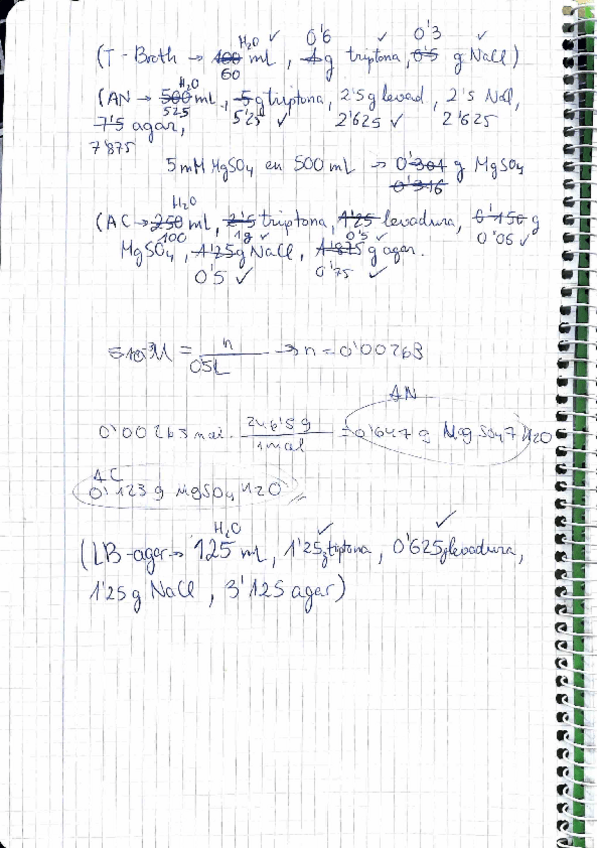 H₂O ✓ 0'6 ✓ 0'3 ✓
(T-Broth → 100 mL, 1g triptona, 0'5 g NaCl)
60
H₂O
(AN → 500 mL, 5g triptona, 2'5g levad, 2'5 NaCl,
525 5'25 ✓ 2'625 ✓ 2'625
7'5 agar,
7'875
5 mM MgSO₄ en 500 mL → 0'301 g MgSO₄
0'316
H₂O
(AC → 250 mL, 2'5 triptona, 1'25 levadura, 0'150 g
100 1g ✓ 0'5 ✓ 0'06 ✓
MgSO₄, 1'25g NaCl, 1'875 g agar.
0'5 ✓ 0'75 ✓
5·10⁻³M = n → n = 0'00263
0'5L
AN
0'00263 mol · 246'5 g = 0'647 g MgSO₄7H₂O
1mol
AC
0'123 g MgSO₄ H₂O
H₂O ✓ ✓
(LB-agar → 125 mL, 1'25g triptona, 0'625g levadura,
1'25 g NaCl, 3'125 agar)